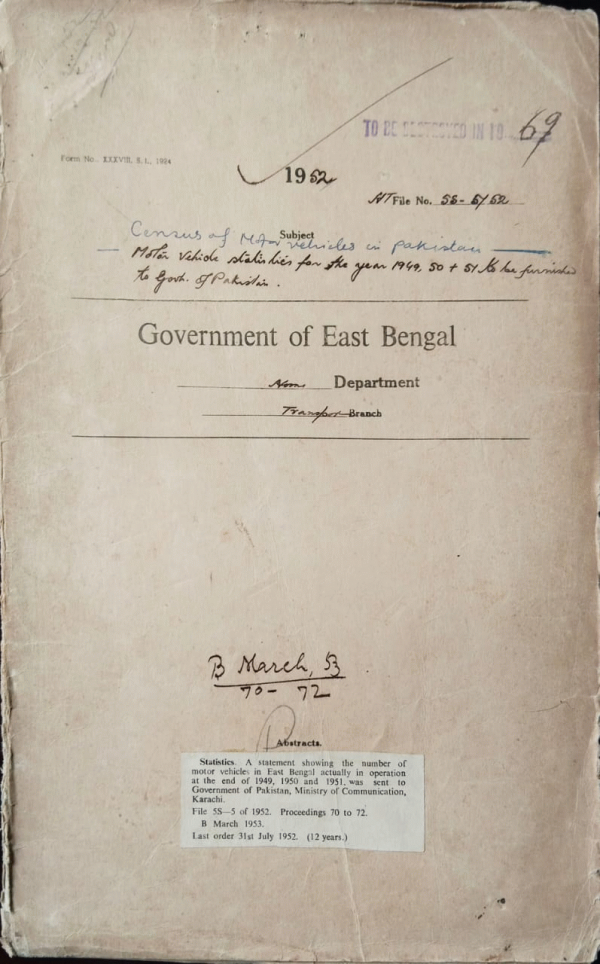 TO BE DESTROYED IN 19 69
Form No. XXXVIII, S. I., 1924
1952
File No. 5S-5/52
Subject
Census of Motor vehicles in Pakistan
Motor Vehicle statistics for the year 1949, 50 + 51 to be furnished
to Govt. of Pakistan.
Government of East Bengal
Department
Transport Branch
B March, 53
70 - 72
Abstracts.
Statistics. A statement showing the number of
motor vehicles in East Bengal actually in operation
at the end of 1949, 1950 and 1951, was sent to
Government of Pakistan, Ministry of Communication,
Karachi.
File 5S—5 of 1952. Proceedings 70 to 72.
B March 1953.
Last order 31st July 1952. (12 years.)